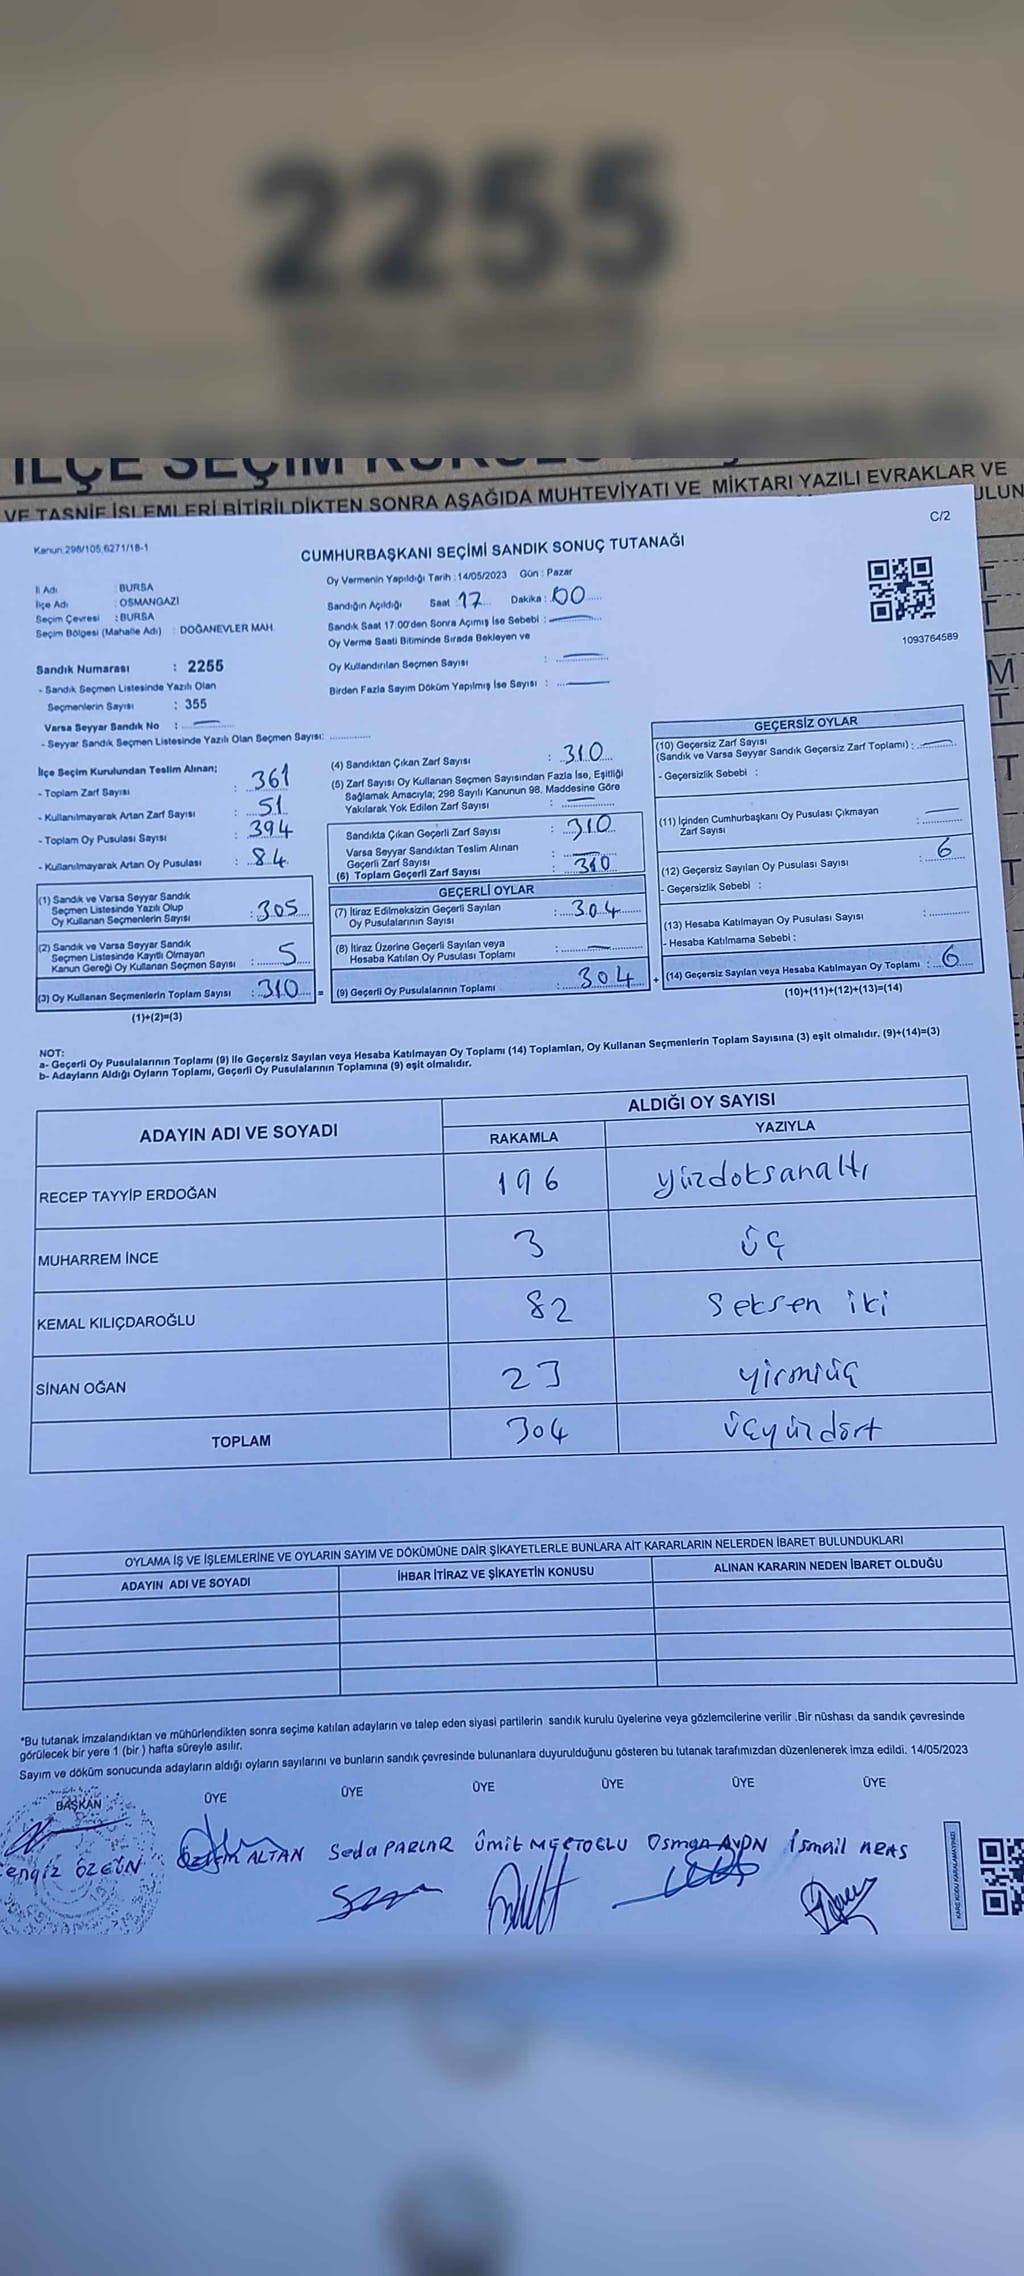 2255
İLÇE SEÇİM KURULU
VE TASNİF İŞLEMLERİ BİTİRİLDİKTEN SONRA AŞAĞIDA MUHTEVİYATI VE MİKTARI YAZILI EVRAKLAR VE
C/2
Kanun:298/105,6271/18-1
CUMHURBAŞKANI SEÇİMİ SANDIK SONUÇ TUTANAĞI
İl Adı : BURSA
İlçe Adı : OSMANGAZİ
Seçim Çevresi : BURSA
Seçim Bölgesi (Mahalle Adı) : DOĞANEVLER MAH.
Oy Vermenin Yapıldığı Tarih :14/05/2023 Gün : Pazar
Sandığın Açıldığı Saat : 17 Dakika : 00
Sandık Saat 17:00'den Sonra Açımış İse Sebebi :
Oy Verme Saati Bitiminde Sırada Bekleyen ve
Oy Kullandırılan Seçmen Sayısı :
Birden Fazla Sayım Döküm Yapılmış İse Sayısı :
1093764589
Sandık Numarası : 2255
- Sandık Seçmen Listesinde Yazılı Olan
Seçmenlerin Sayısı : 355
Varsa Seyyar Sandık No :
- Seyyar Sandık Seçmen Listesinde Yazılı Olan Seçmen Sayısı:
İlçe Seçim Kurulundan Teslim Alınan;
- Toplam Zarf Sayısı : 361
- Kullanılmayarak Artan Zarf Sayısı : 51
- Toplam Oy Pusulası Sayısı : 394
- Kullanılmayarak Artan Oy Pusulası : 84
(1) Sandık ve Varsa Seyyar Sandık
Seçmen Listesinde Yazılı Olup
Oy Kullanan Seçmenlerin Sayısı : 305
(2) Sandık ve Varsa Seyyar Sandık
Seçmen Listesinde Kayıtlı Olmayan
Kanun Gereği Oy Kullanan Seçmen Sayısı : 5
(3) Oy Kullanan Seçmenlerin Toplam Sayısı : 310 =
(1)+(2)=(3)
(4) Sandıktan Çıkan Zarf Sayısı : 310
(5) Zarf Sayısı Oy Kullanan Seçmen Sayısından Fazla İse, Eşitliği
Sağlamak Amacıyla; 298 Sayılı Kanunun 98. Maddesine Göre
Yakılarak Yok Edilen Zarf Sayısı :
Sandıkta Çıkan Geçerli Zarf Sayısı : 310
Varsa Seyyar Sandıktan Teslim Alınan
Geçerli Zarf Sayısı :
(6) Toplam Geçerli Zarf Sayısı : 310
GEÇERLİ OYLAR
(7) İtiraz Edilmeksizin Geçerli Sayılan
Oy Pusulalarının Sayısı : 304
(8) İtiraz Üzerine Geçerli Sayılan veya
Hesaba Katılan Oy Pusulası Toplamı :
(9) Geçerli Oy Pusulalarının Toplamı : 304 +
GEÇERSİZ OYLAR
(10) Geçersiz Zarf Sayısı
(Sandık ve Varsa Seyyar Sandık Geçersiz Zarf Toplamı) :
- Geçersizlik Sebebi :
(11) İçinden Cumhurbaşkanı Oy Pusulası Çıkmayan
Zarf Sayısı :
(12) Geçersiz Sayılan Oy Pusulası Sayısı : 6
- Geçersizlik Sebebi :
(13) Hesaba Katılmayan Oy Pusulası Sayısı :
- Hesaba Katılmama Sebebi :
(14) Geçersiz Sayılan veya Hesaba Katılmayan Oy Toplamı : 6
(10)+(11)+(12)+(13)=(14)
NOT:
a- Geçerli Oy Pusulalarının Toplamı (9) ile Geçersiz Sayılan veya Hesaba Katılmayan Oy Toplamı (14) Toplamları, Oy Kullanan Seçmenlerin Toplam Sayısına (3) eşit olmalıdır. (9)+(14)=(3)
b- Adayların Aldığı Oyların Toplamı, Geçerli Oy Pusulalarının Toplamına (9) eşit olmalıdır.
ADAYIN ADI VE SOYADI ALDIĞI OY SAYISI
RAKAMLA YAZIYLA
RECEP TAYYİP ERDOĞAN 196 yüzdoksanaltı
MUHARREM İNCE 3 üç
KEMAL KILIÇDAROĞLU 82 Seksen iki
SİNAN OĞAN 23 yirmiüç
TOPLAM 304 üçyüzdört
OYLAMA İŞ VE İŞLEMLERİNE VE OYLARIN SAYIM VE DÖKÜMÜNE DAİR ŞİKAYETLERLE BUNLARA AİT KARARLARIN NELERDEN İBARET BULUNDUKLARI
ADAYIN ADI VE SOYADI İHBAR İTİRAZ VE ŞİKAYETİN KONUSU ALINAN KARARIN NEDEN İBARET OLDUĞU
*Bu tutanak imzalandıktan ve mühürlendikten sonra seçime katılan adayların ve talep eden siyasi partilerin sandık kurulu üyelerine veya gözlemcilerine verilir .Bir nüshası da sandık çevresinde
görülecek bir yere 1 (bir ) hafta süreyle asılır.
Sayım ve döküm sonucunda adayların aldığı oyların sayılarını ve bunların sandık çevresinde bulunanlara duyurulduğunu gösteren bu tutanak tarafımızdan düzenlenerek imza edildi. 14/05/2023
BAŞKAN ÜYE ÜYE ÜYE ÜYE ÜYE ÜYE
engiz ÖZGÜN ALTAN Seda PARLAR Ümit Osman AYDN İsmail ARAS
KARE KODU KARALAMAYINIZ!